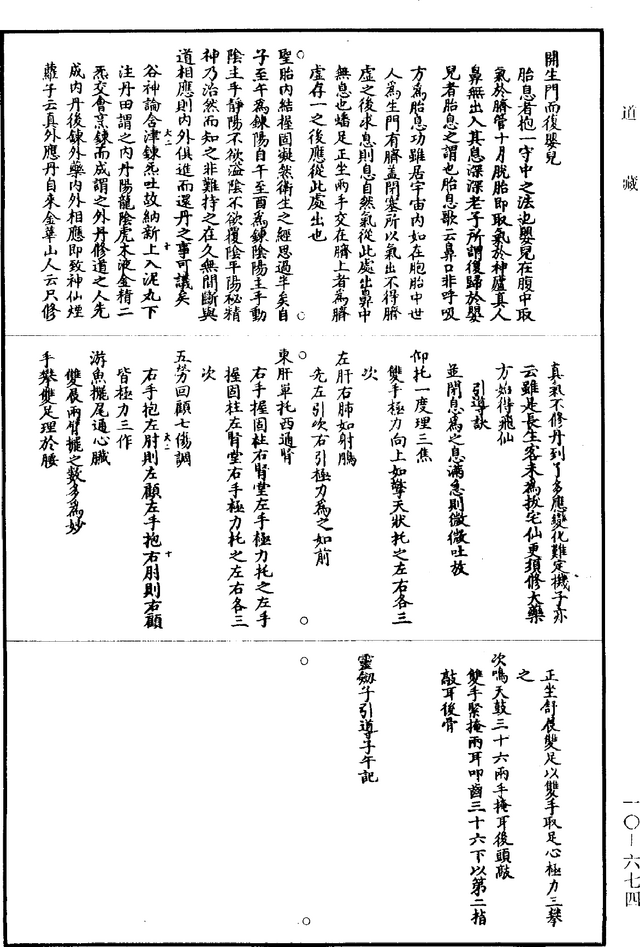 道藏
開生門而復嬰兒
胎息者抱一守中之法也嬰兒在腹中取
氣於臍管十月脫胎即取氣於神廬真人
鼻無出入其息深深老子所謂復歸於嬰
兒者胎息之謂也胎息歌云鼻口非呼吸
方為胎息功雖居宇宙內如在胞胎中世
人為生門有臍蓋閉塞所以氣出不得臍
虛之後求息則息自然氣從此處出鼻中
無息也蟠足正坐兩手交在臍上者為臍
虛存一之後應從此處出也
聖胎內結握固凝然衛生之經思過半矣自
子至午為鍊陽自午至酉為鍊陰陽主手動
陰主手靜陽不欲溢陰不欲覆陰平陽秘精
神乃治然而知之非難持之在久無間斷與
道相應則內外俱進而還丹之事可議矣
谷神論含津鍊炁吐故納新上入泥丸下
注丹田謂之內丹陽龍陰虎木液金精二
炁交會烹鍊而成謂之外丹修道之人先
成內丹後鍊外藥內外相應即致神仙煙
蘿子云真外應丹自來金華山人云只修
真氣不修丹到了多應變化難定機子亦
云雖是長生客未為拔宅仙更須修大藥
方始得飛仙
引導訣
並閉息為之息滿急則微微吐放
仰托一度理三焦
雙手極力向上如擎天狀托之左右各三
次
左肝右肺如射鵰
先左引次右引極力為之如前
東肝單托西通腎
右手握固柱右腎堂左手極力托之左手
握固柱左腎堂右手極力托之左右各三
次
五勞回顧七傷調
右手抱左肘則左顧左手抱右肘則右顧
皆極力三作
游魚擺尾通心臟
雙展兩臂擺之數多為妙
手攀雙足理於腰
正坐舒展雙足以雙手取足心極力三攀
之
次鳴天鼓三十六兩手掩耳後頭敲
雙手緊掩兩耳叩齒三十六下以第二指
敲耳後骨
靈劔子引導子午記
一〇－六七四